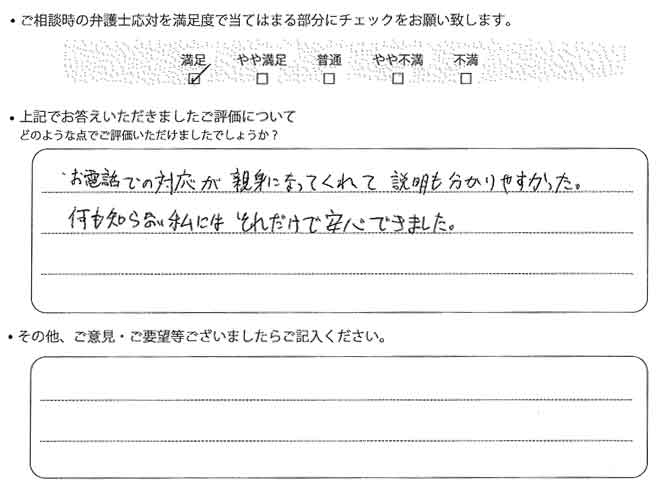 ・ご相談時の弁護士応対を満足度で当てはまる部分にチェックをお願い致します。
満足 やや満足 普通 やや不満 不満
☑ □ □ □ □
・上記でお答えいただきましたご評価について
どのような点でご評価いただけましたでしょうか?
・お電話での対応が親身になってくれて説明も分かりやすかった。
何も知らない私にはそれだけで安心できました。
・その他、ご意見・ご要望等ございましたらご記入ください。